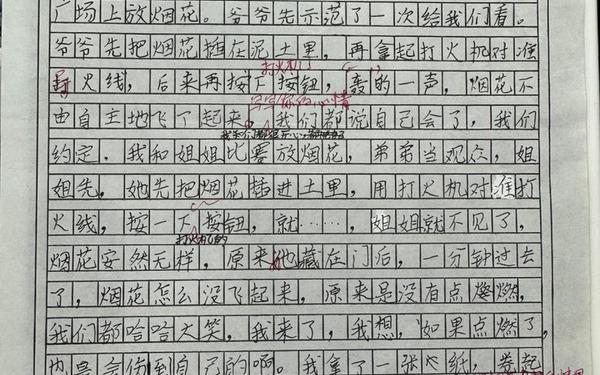 广场上放烟花。爷爷先示范了一次给我们看。
爷爷先把烟花插在泥土里，再拿起打火机对准
火线，后来再按下按钮，轰的一声，烟花不
打火机
写写你的心情
由自主地飞了起来，我们都说自己会了，我们
约定．我和姐姐比赛放烟花，弟弟当观众，姐
姐先，她先把烟花插进土里，用打火机对准打
火线，按一下按钮，就……，姐姐就不见了，
打火机的
烟花安然无样，原来她藏在门后，一分钟过去
了，烟花怎么没飞起来，原来是没有点燃，
我们都哈哈大笑，我来了，我想，如果点燃了，
也是会伤到自己的啊。我拿了一张纸，卷起